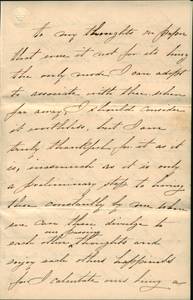 to my thoughts on paper
that were it not for its being
the only mode I can adopt
to associate with thee when
far away, I should consider
it worthless, but I am
truly thankful for it as it
is, inasmuch as it is only
a preliminary step to having
thee constantly by me where
we can then divulge to
our passing
each other thoughts and
enjoy each others happiness
for I calculate our being a